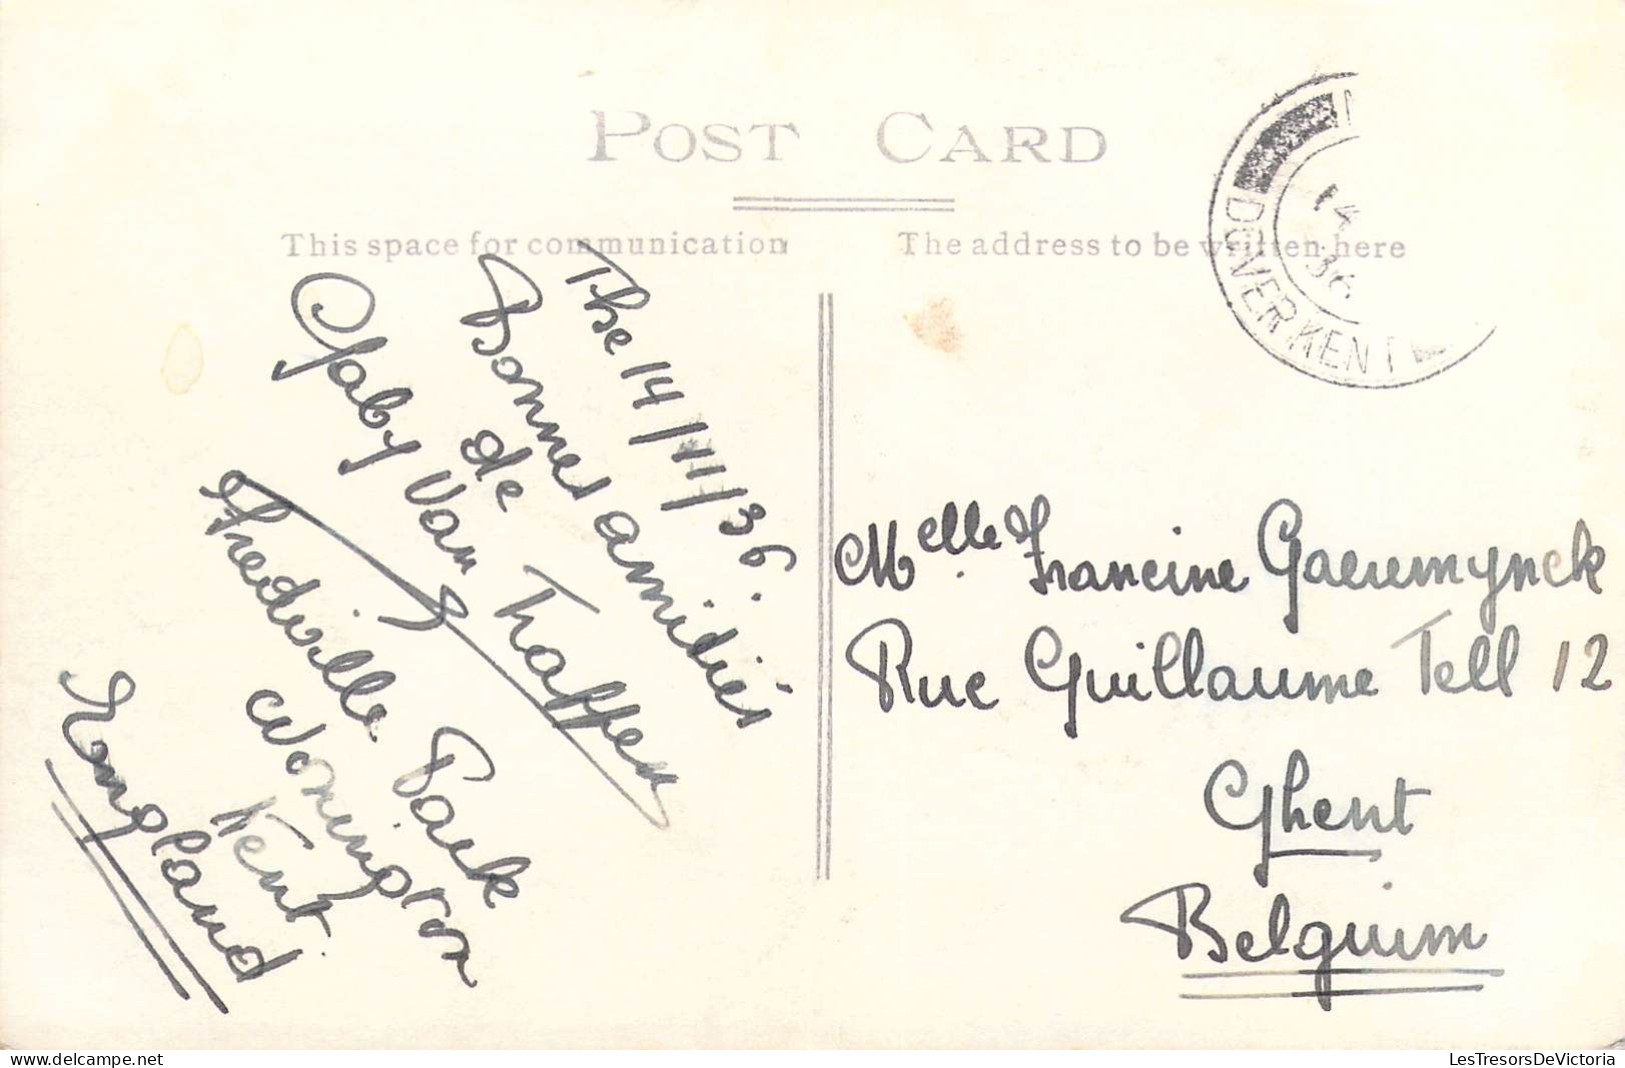 POST CARD
This space for communication
The address to be written here
14
36
DOVER KENT
The 14/11/36.
Bonnes amitiés
de
Gaby Van Traffen
Fredville Park
Nonington
Kent
England
Melle. Francine Gaeremynck
Rue Guillaume Tell 12
Ghent
Belguim
delcampe.net
LesTresorsDeVictoria